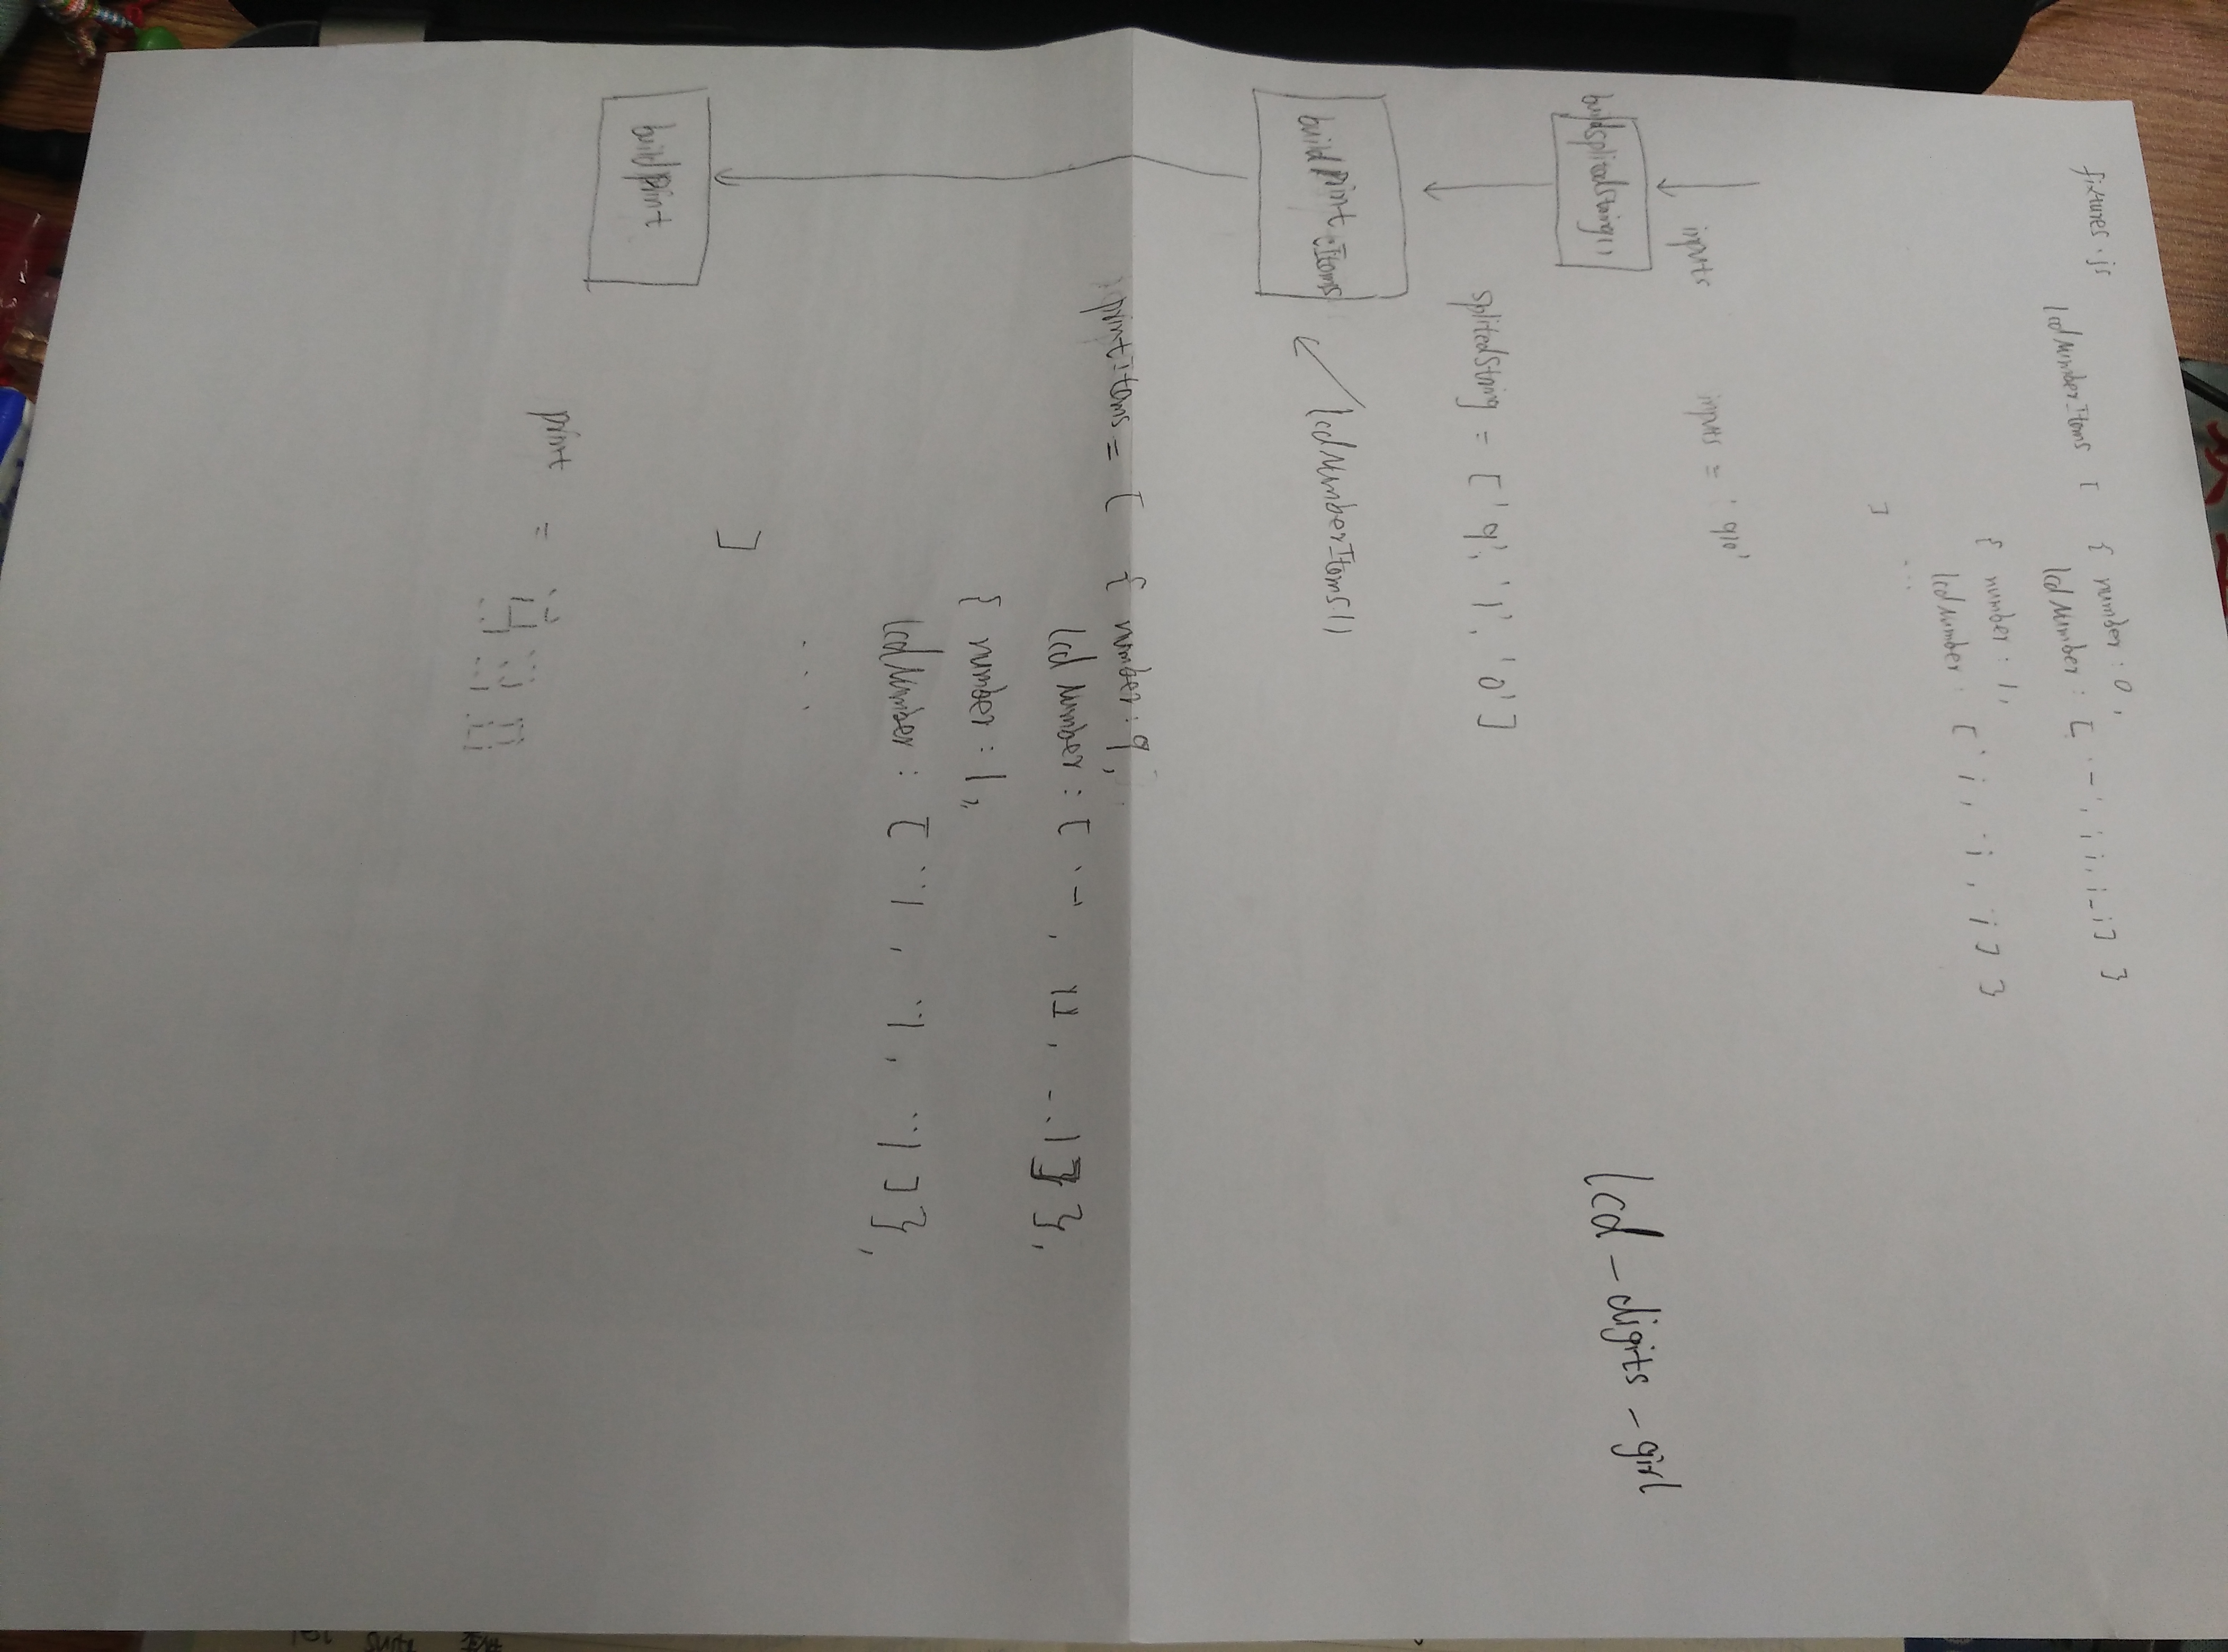 fixtures.js
lcdNumberItems [ { number : 0 ,
lcdNumber : [
{ number : 1 ,
lcdNumber : [
...
]
inputs
inputs = '910'
buildsplitedString()
splitedString = [ '9', '1', '0' ]
lcd-digits-girl
buildprintItems
lcdNumberItems()
printItems = [ { number : 9,
lcdNumber : [
{ number : 1,
lcdNumber : [
...
]
buildprint
print =